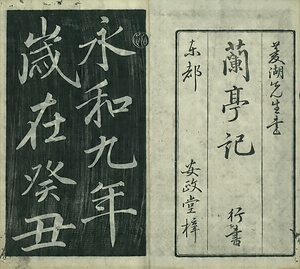 菱湖先生書
蘭亭記
行書
東都
安政堂梓
永和九年
歳在癸丑